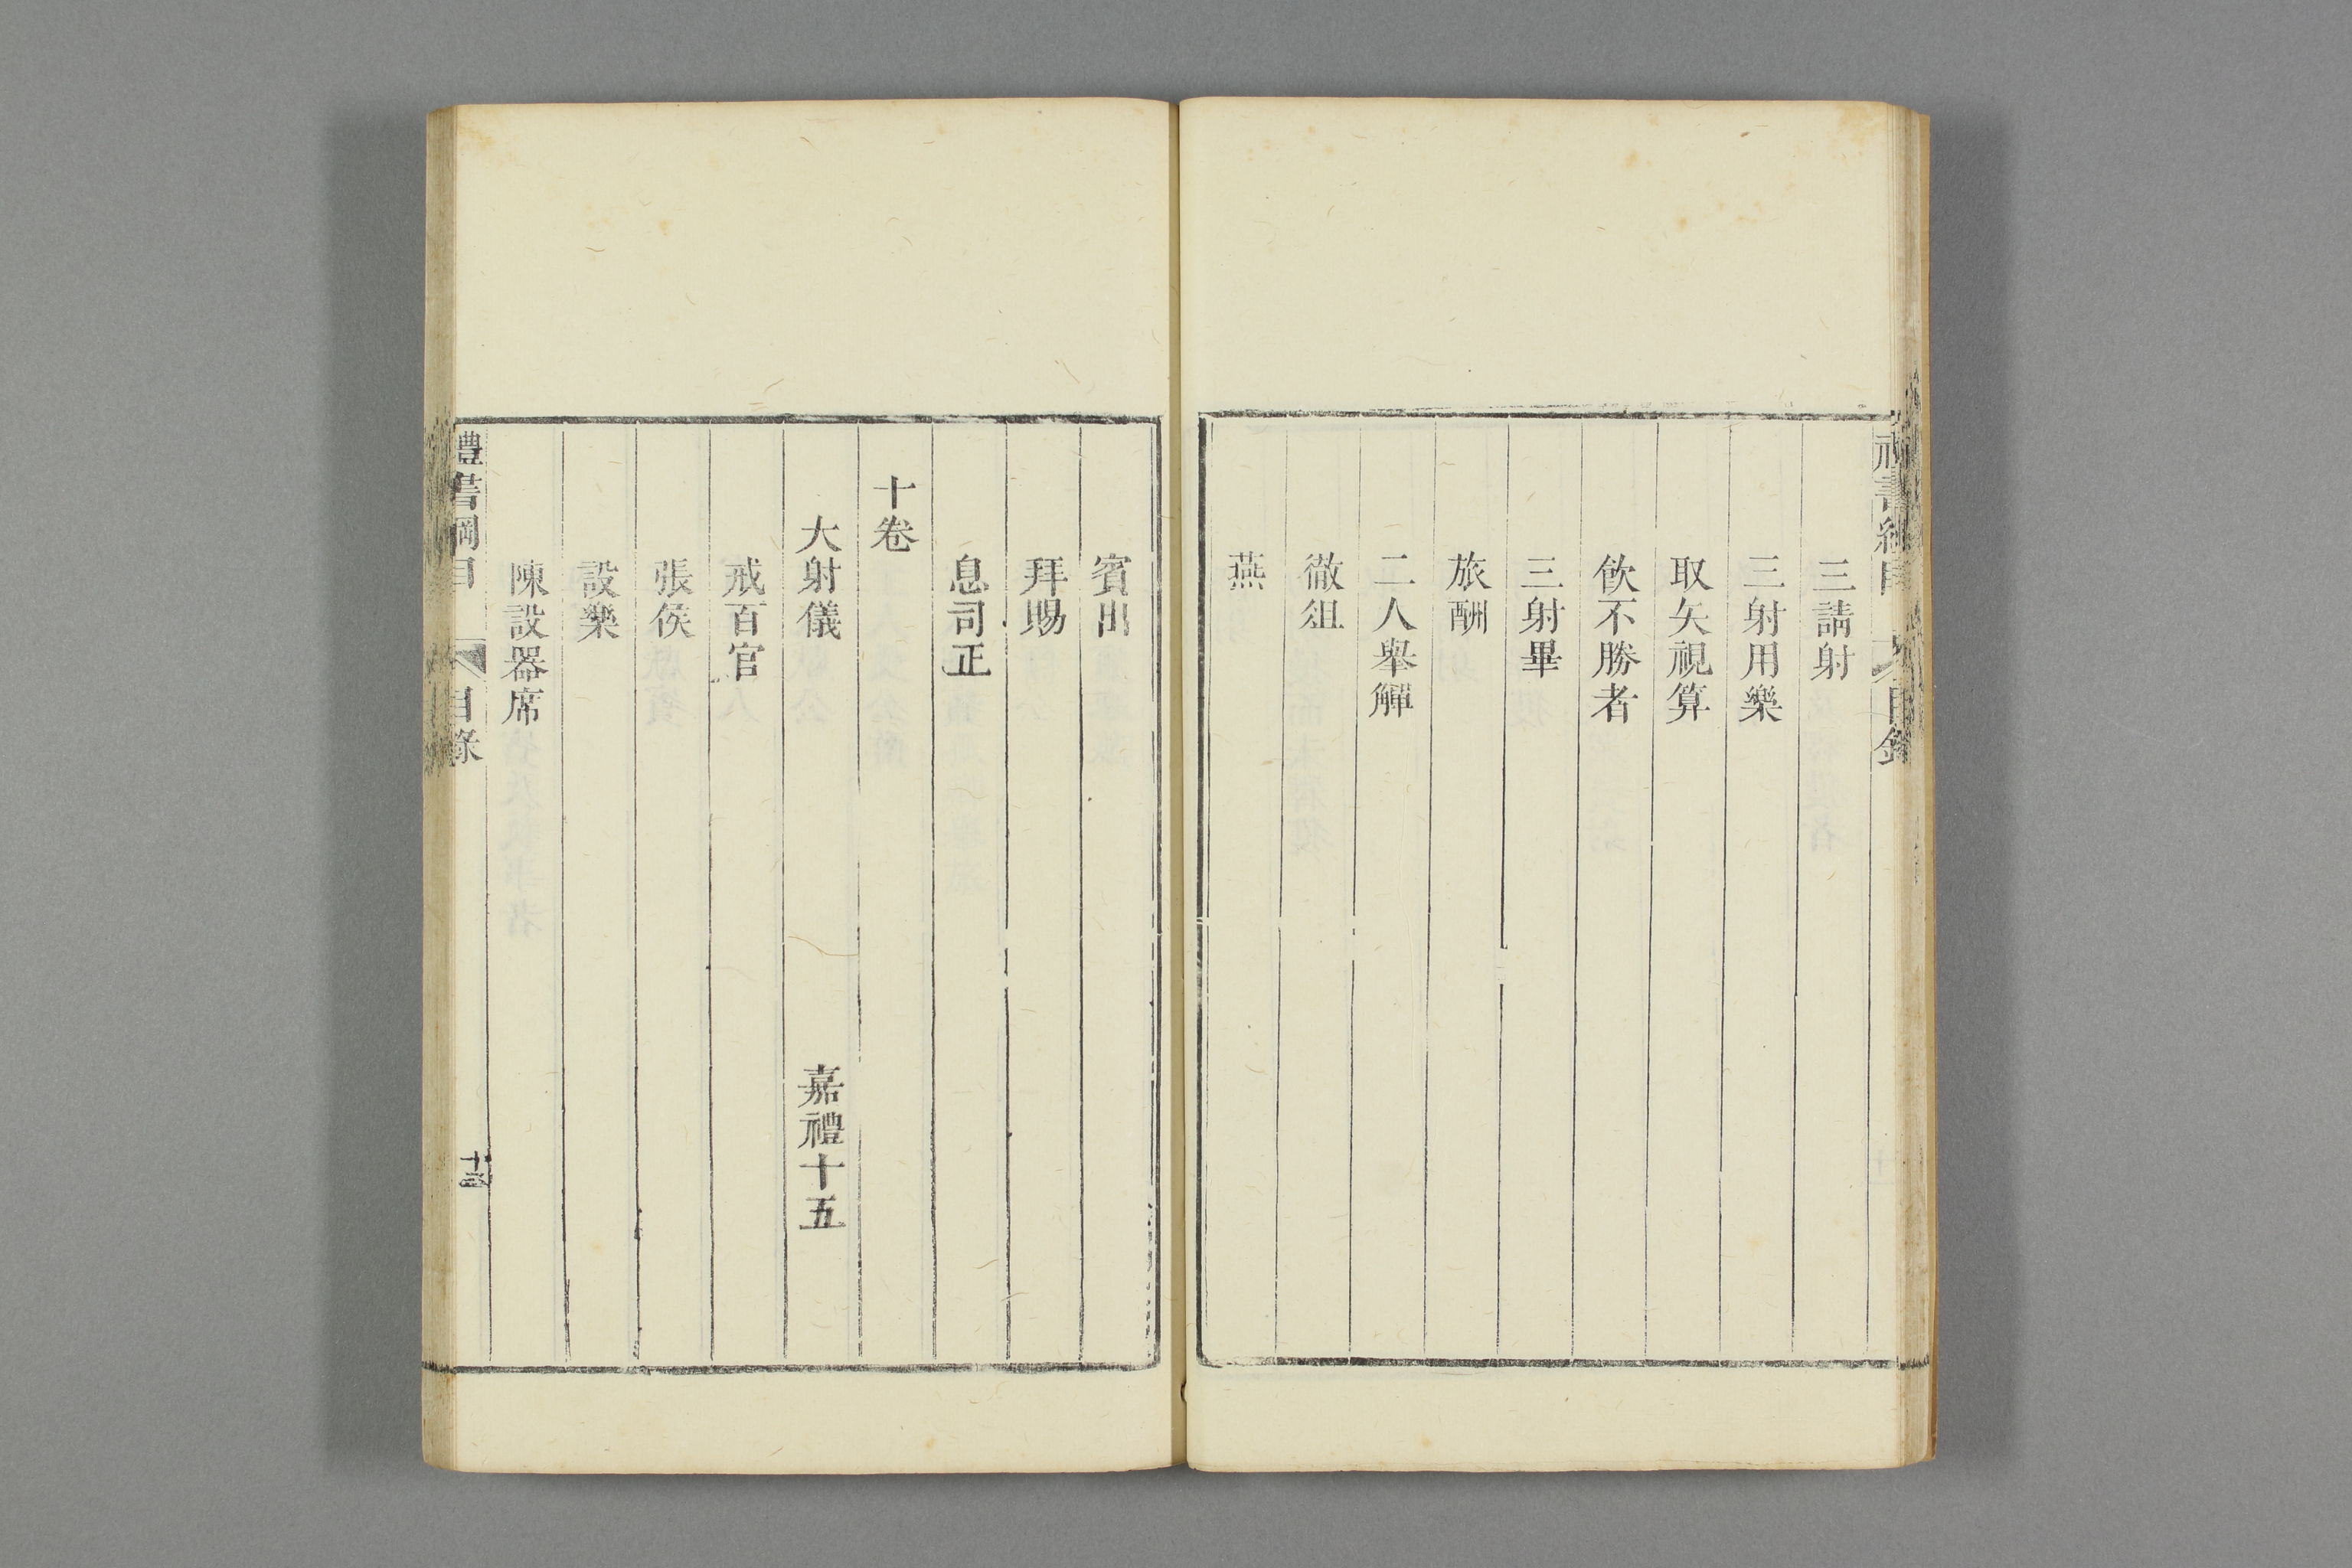 三請射
三射用樂
取矢視算
飲不勝者
三射畢
旅酬
二人舉觶
徹俎
燕
賓出
拜賜
息司正
十卷
大射儀 嘉禮十五
戒百官
張侯
設樂
陳設器席
禮書綱目 目錄